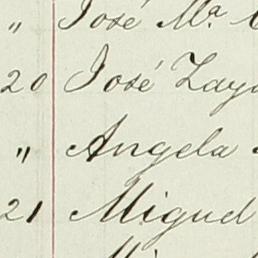 " José Mª
20 José Zay
" Angela
21 Miguel